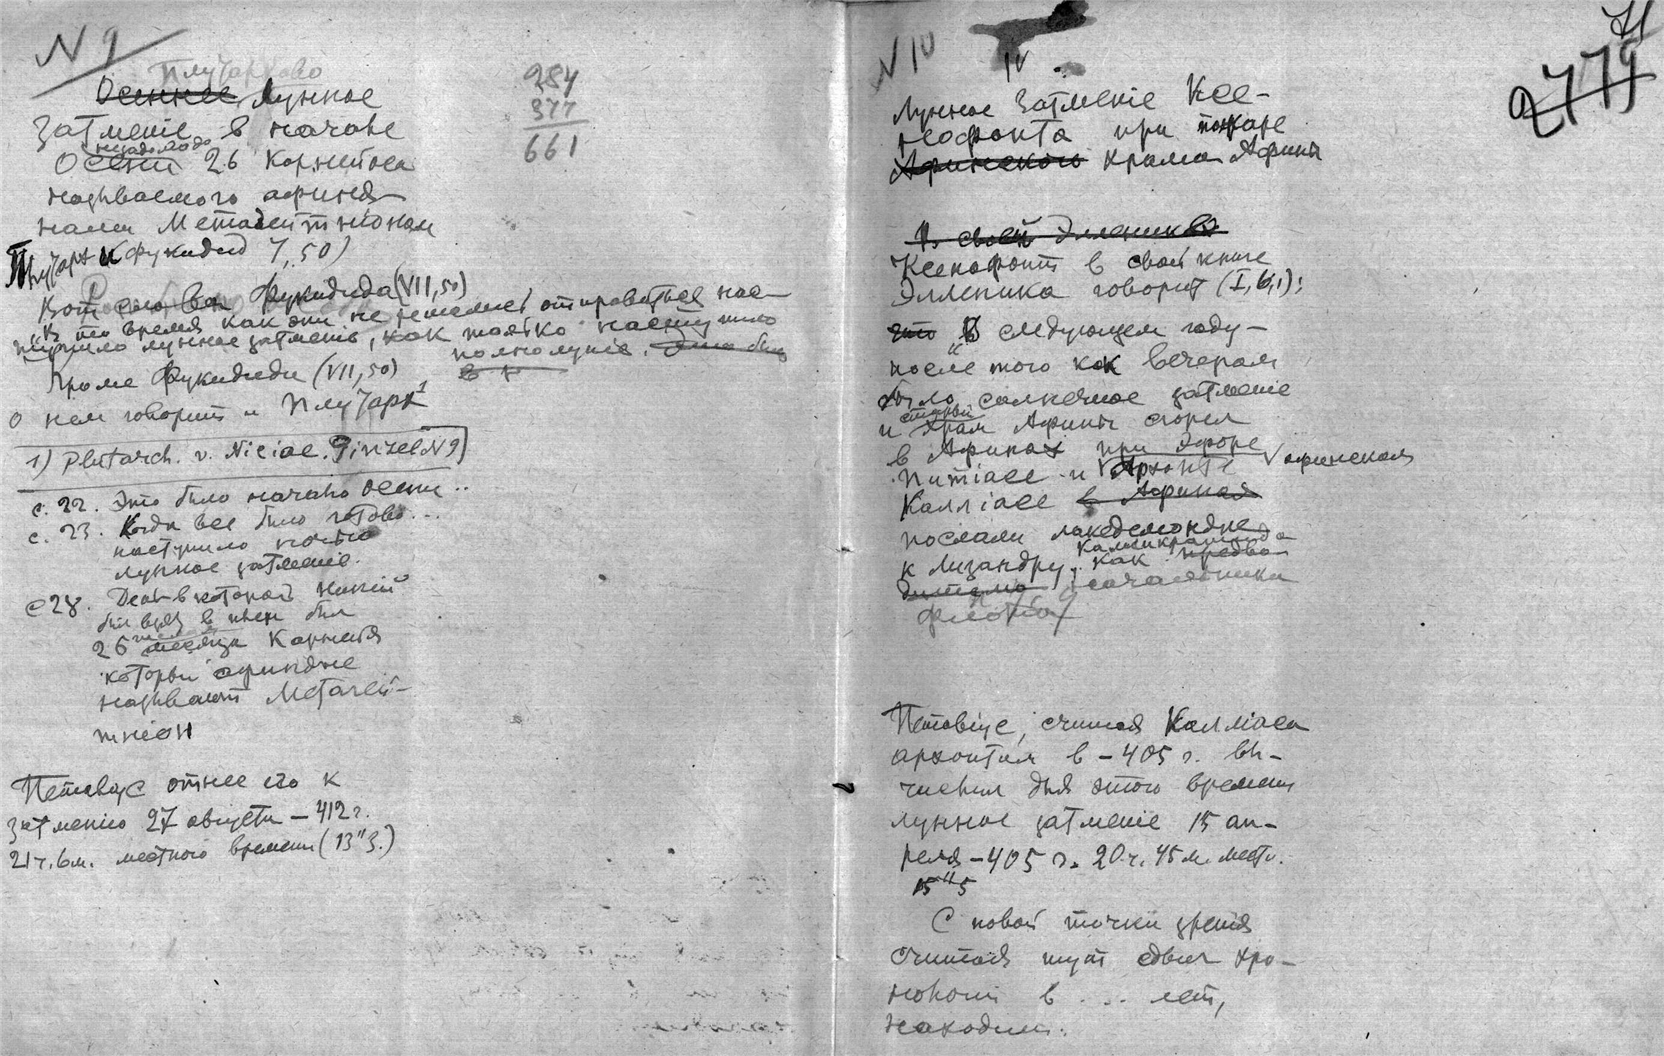 N 9
Плутархово
Осеннее Лунное
Затменіе в начале
незадолго до
Осени 26 Карнейоса
называемого афиня-
нами Метагейтніоном
Плутарх и Фукидид 7, 50)
284
377
661
Вот его Фукидида (VII, 50)
"В то время как они не решались отправиться нас-
тупило лунное затменіе, как только наступило
полнолуніе. Это был
Кроме Фукидиди (VII, 50)
о нем говорит и Плутарх 1
1) Plutarch. v. Niciae. Ginzel N 9)
с. 22. Это было начало осени ..
с. 23. Когда все было готово...
наступило ночью
лунное затменіе.
с 28. День в которой Никій
был взят в плен был
26 числа месяца Карнея
который афиняне
называют Метагей-
тніон
Петавіус отнес его к
затменію 27 августа – 412 г.
21 ч. 6 м. местного времени (13"3.)
N 10
IV
71
2779
Лунное Затменіе Ксе-
нофонта при пожаре
Афинского храма Афины
В своей Элленика
Ксенофонт в своей книге
Элленика говорит (I, 6, 1):
что "В следующем году –
после того как вечером
было солнечное затменіе
старый
и Храм Афины сгорел
в Афинах при Эфоре
Питіасе и Архонте V афинском
Калліасе в Афинах
послали лакедемоняне
Калликратида
к Лизандру, как предво-
дителя начальника
флота"
Петавіус, считая Калліаса
архонтом в – 405 г. вы-
числил для этого времени
лунное затменіе 15 ап-
реля – 405 г. 20 ч. 45 м. местн.
15"5
С новой точки зренія
считая тут сдвиг хро-
нологіи в ... лет,
находим.